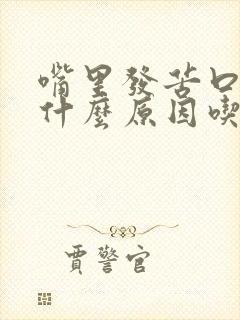 嘴里發苦口
什麼原因喫
賈警官